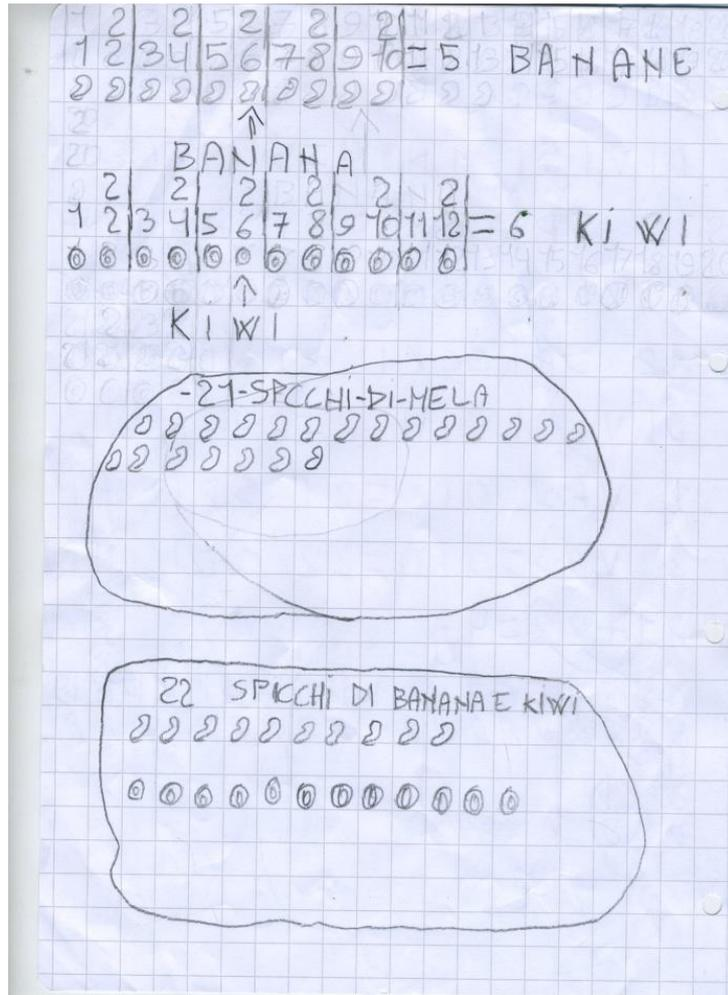 2 2 2 2 2
1 2 3 4 5 6 7 8 9 10 = 5 BANANE
BANANA
2 2 2 2 2 2
1 2 3 4 5 6 7 8 9 10 11 12 = 6 KiWI
KIWI
-21-SPCCHi-Di-MELA
22 SPICCHi DI BANANA E KIWI